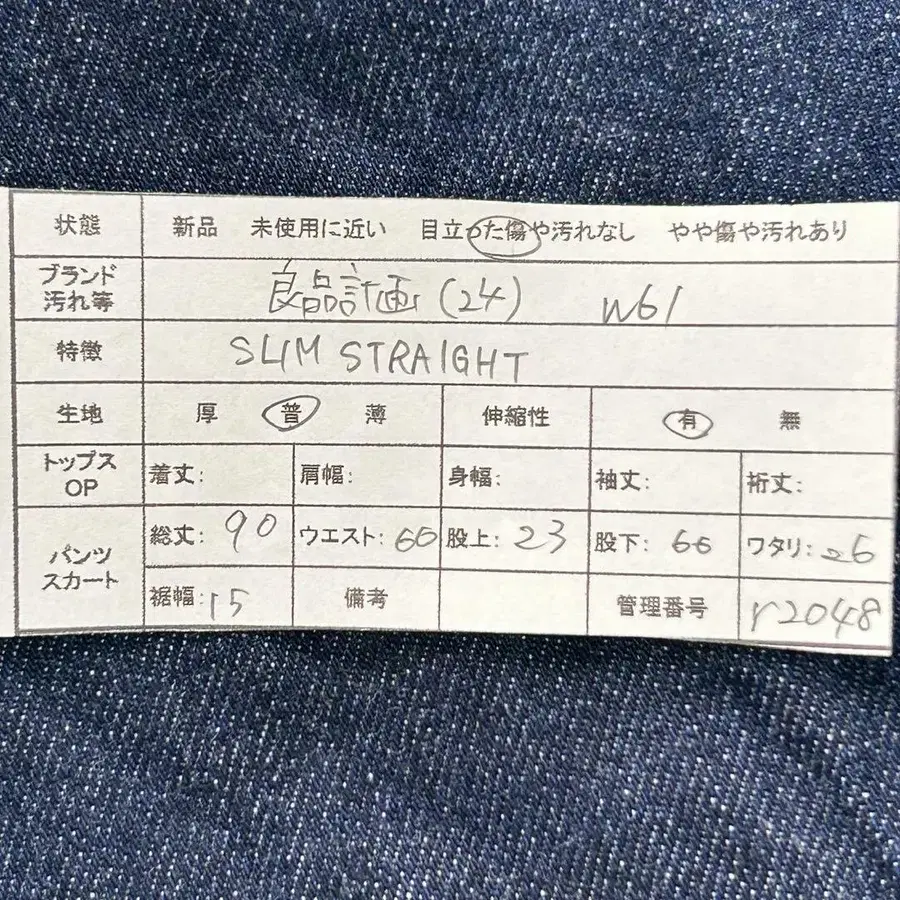 状態 新品 未使用に近い 目立った傷や汚れなし やや傷や汚れあり
ブランド 汚れ等 良品計画(24) W61
特徴 SLIM STRAIGHT
生地 厚 普 薄 伸縮性 有 無
トップス OP 着丈: 肩幅: 身幅: 袖丈: 裄丈:
パンツ スカート 総丈: 90 ウエスト: 66 股上: 23 股下: 66 ワタリ: 26
裾幅: 15 備考 管理番号 r2048